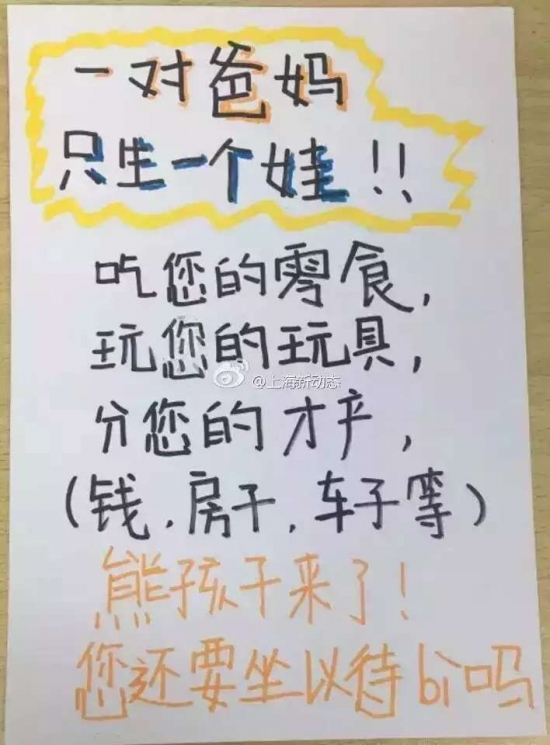 一对爸妈
只生一个娃!!
吃您的零食,
玩您的玩具,
@上海新动态
分您的才产,
(钱,房子,车子等)
熊孩子来了!
您还要坐以待bì吗